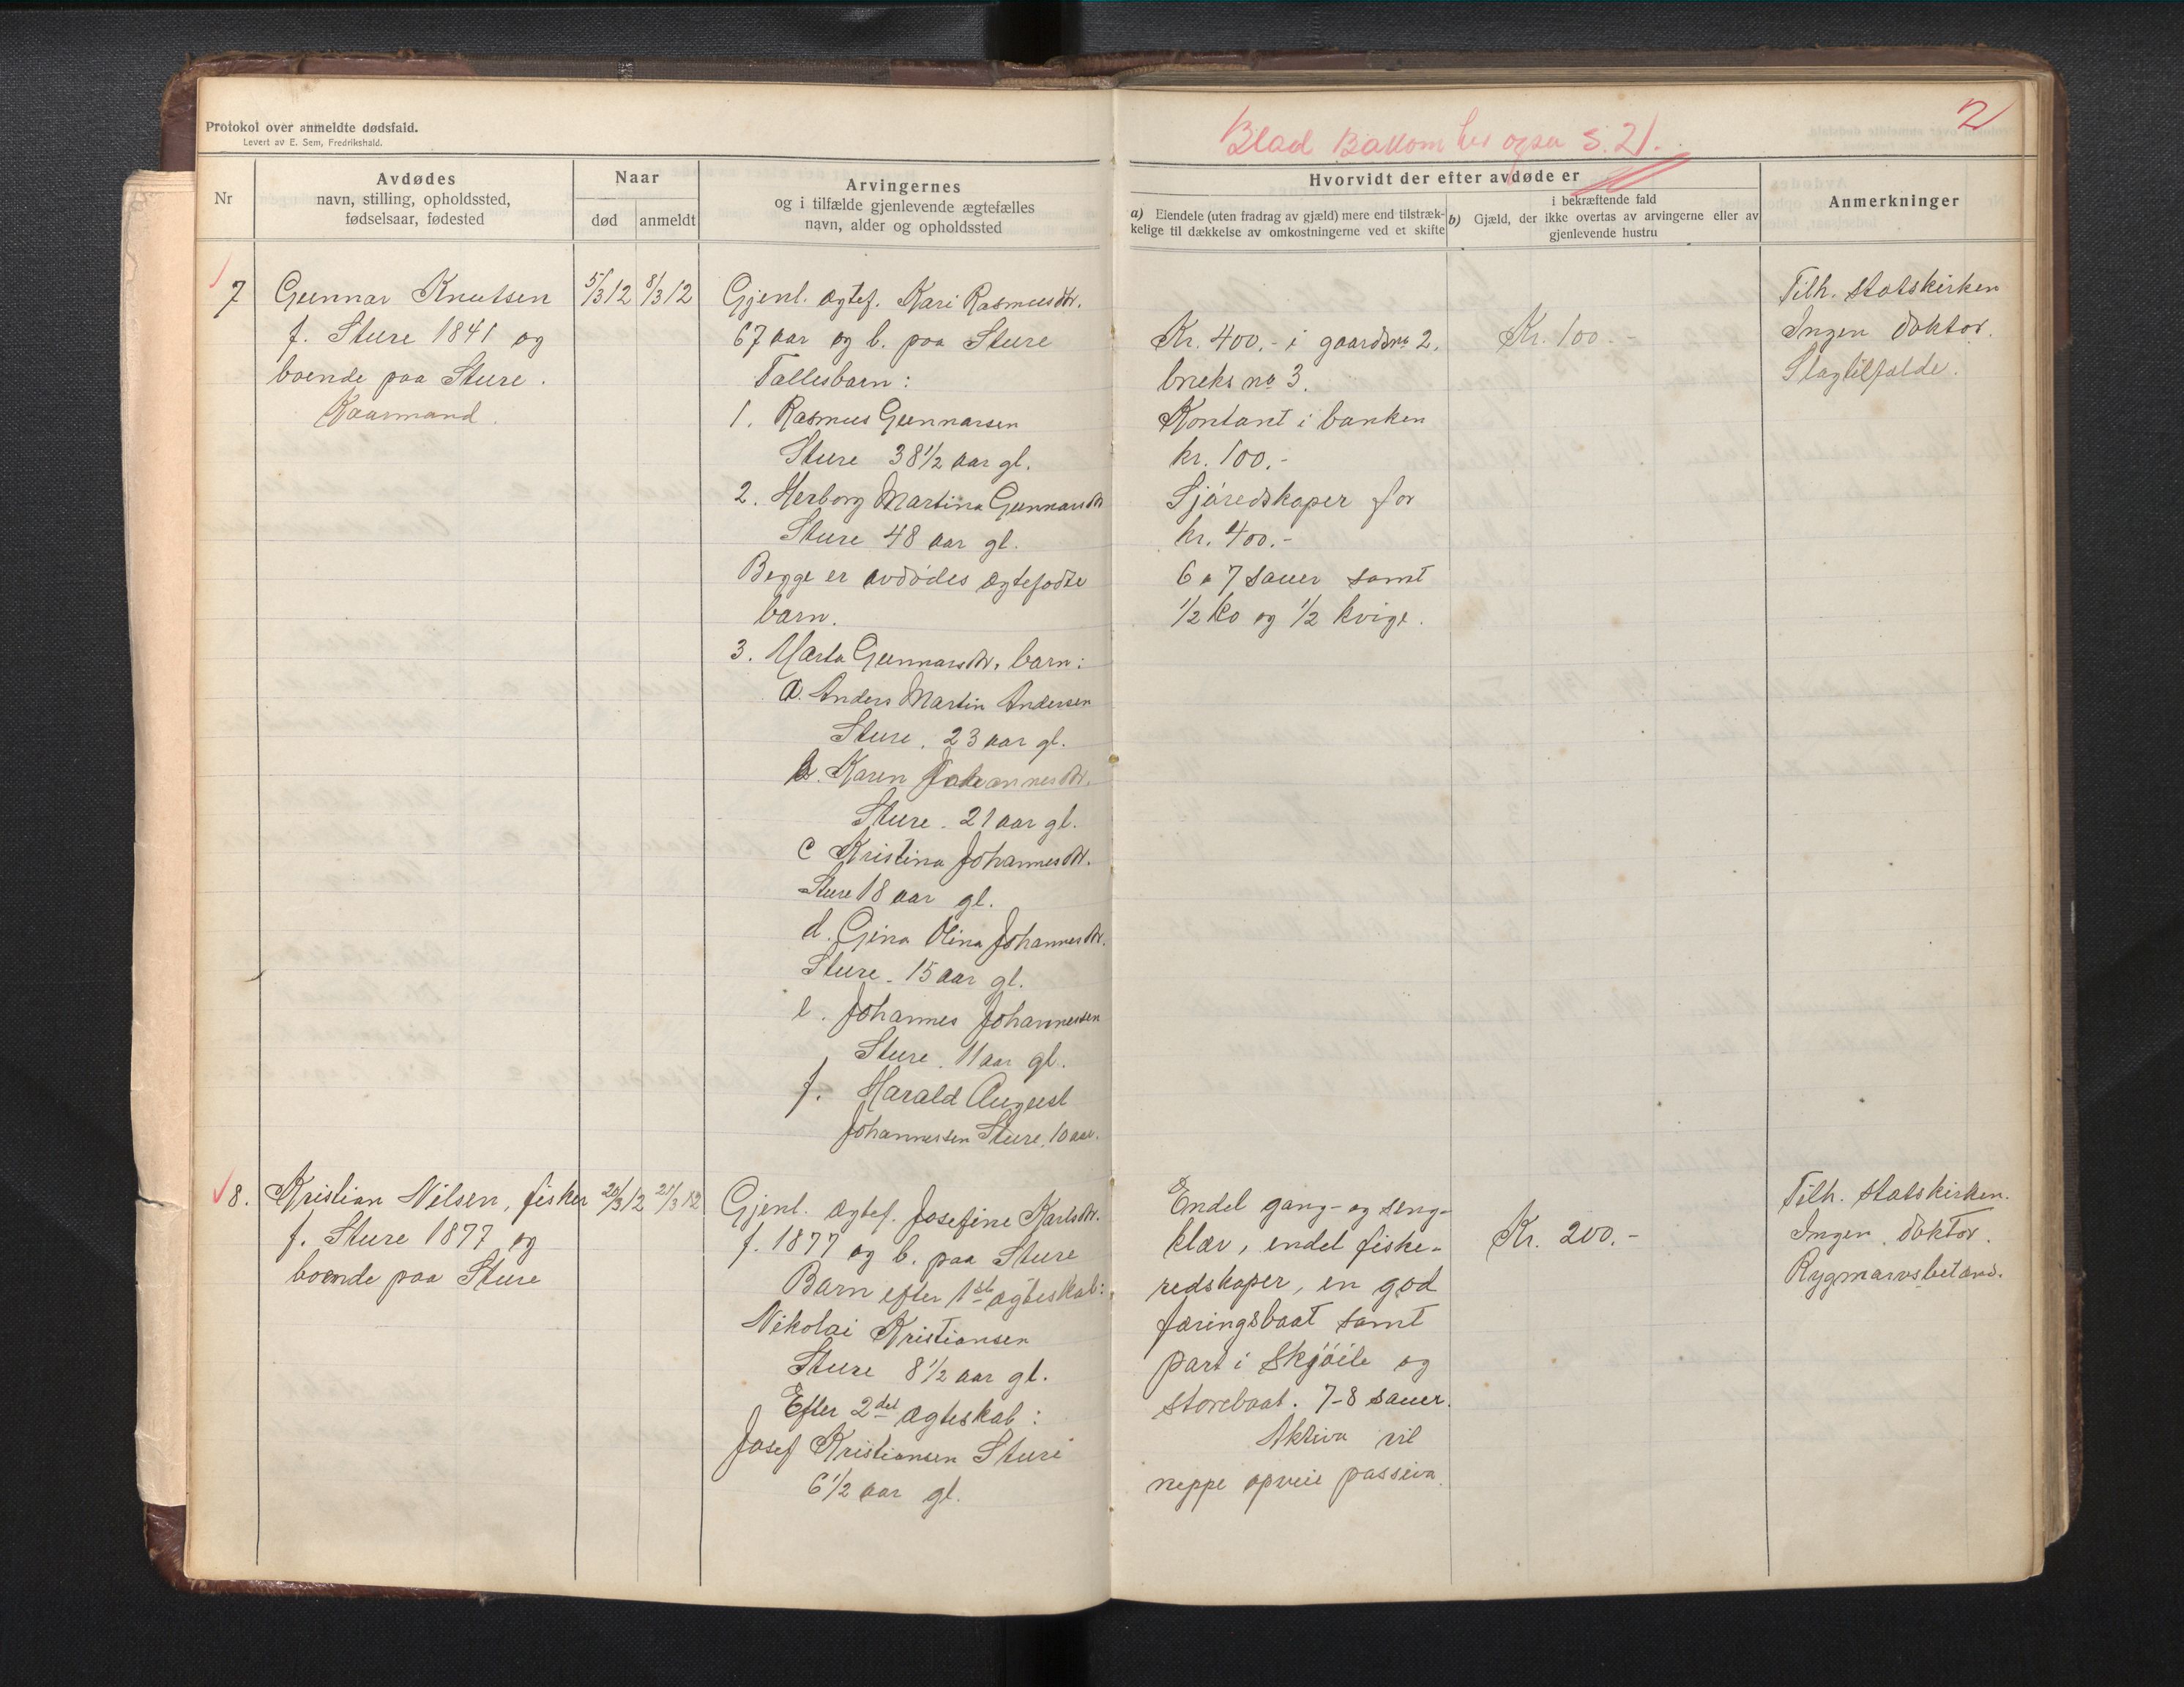 Protokol over anmeldte dødsfald.
Levert av E. Sem, Fredrikshald.
Nr
Avdødes
navn, stilling, opholdssted,
fødselsaar, fødested
Naar
død
anmeldt
Arvingernes
og i tilfælde gjenlevende ægtefælles
navn, alder og opholdssted
7
Gunnar Knutsen
f. Sture 1841 og
boende paa Sture.
Kaarmand.
5/3 12
8/3 12
Gjenl. ægtef. Kari Rasmusdtr.
67 aar og b. paa Sture
Fællesbarn:
1. Rasmus Gunnarsen
Sture 38 1/2 aar gl.
2. Herborg Martina Gunnarsdtr
Sture 48 aar gl.
Begge er avdødes ægtefødte
barn.
3. Marta Gunnarsdtr. barn:
a. Anders Martin Andersen
Sture, 23 aar gl.
b. Karen Johannesdtr.
Sture. 21 aar gl.
c Kristina Johannesdtr.
Sture 18 aar gl.
d. Gina Olina Johannesdtr.
Sture. 15 aar gl.
e. Johannes Johannessen
Sture. 11 aar gl.
f. Harald August
Johannessen Sture, 10 aar.
8.
Kristian Nilsen, fisker
f. Sture 1877 og
boende paa Sture
20/3 12
21/3 12
Gjenl. ægtef. Josefine Karlsdtr.
f. 1877 og b. paa Sture
Barn efter 1ste ægteskab:
Nikolai Kristiansen
Sture 8 1/2 aar gl.
Efter 2det ægteskab:
Josef Kristiansen Sture
6 1/2 aar gl.
Blad Bakom her ogsaa S. 21.
2
Hvorvidt der efter avdøde er
a) Eiendele (uten fradrag av gjæld) mere end tilstræk-
kelige til dækkelse av omkostningerne ved et skifte
i bekræftende fald
b) Gjæld, der ikke overtas av arvingerne eller av
gjenlevende hustru
Anmerkninger
Kr. 400.- i gaardsno 2,
bruks no 3.
Kontant i banken
kr. 100.-
Sjøredskaper for
kr. 400.-
6 a 7 sauer samt
1/2 ko og 1/2 kvige.
Kr. 100.-
Tilh. statskirken
Ingen doktor.
Slagtilfælde.
Endel gang- og seng-
klær, endel fiske-
redskaper, en god
færingsbaat samt
part i skjøite og
storebaat. 7-8 sauer.
Aktiva vil
neppe opveie passiva.
Kr. 200.-
Tilh. statskirken.
Ingen doktor.
Rygmarvsbetænd.